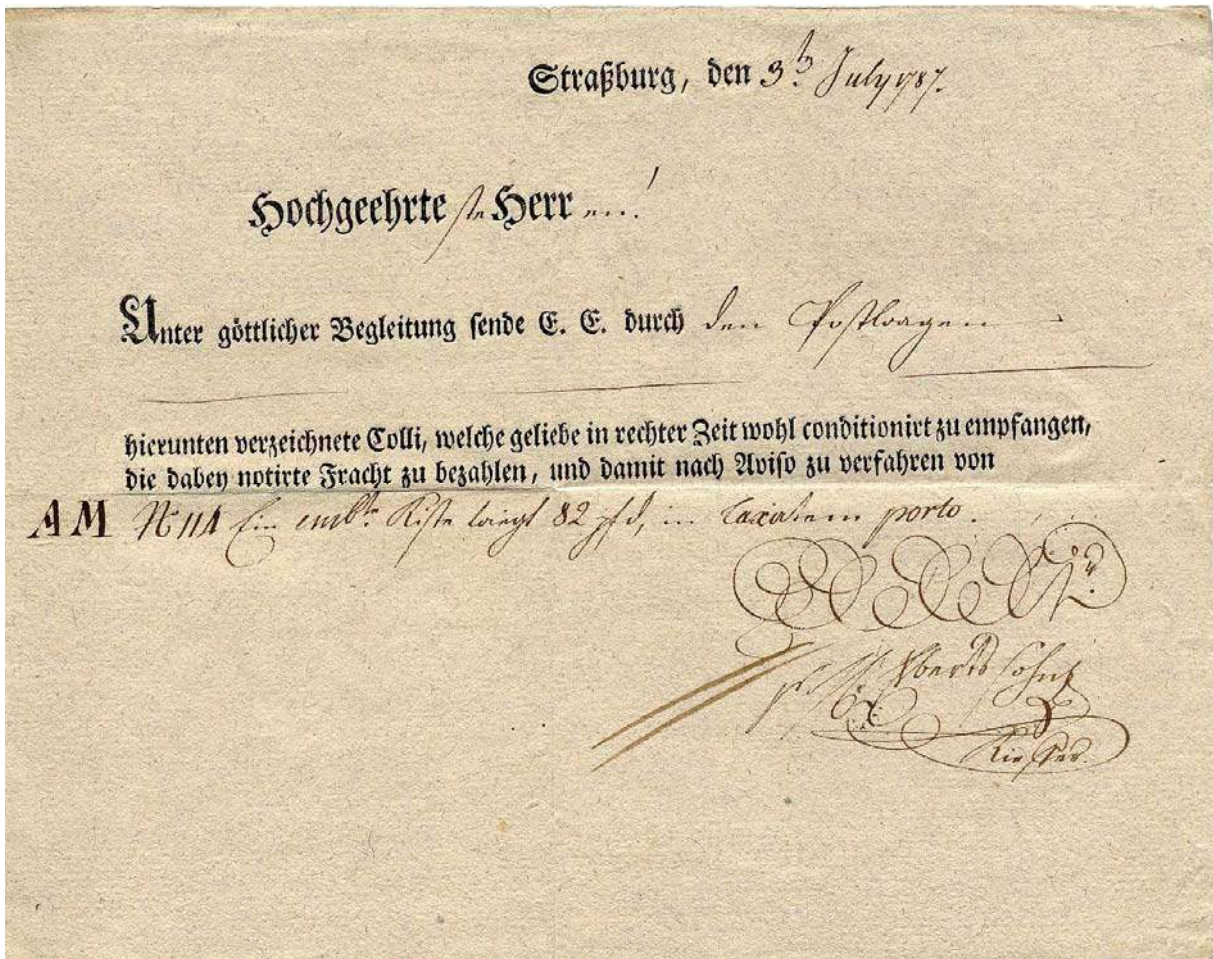 Straßburg, den 3.ᵗ July 1787.
Hochgeehrteste Herren!
Unter göttlicher Begleitung sende E. E. durch den Postwagen
hierunten verzeichnete Colli, welche geliebe in rechter Zeit wohl conditionirt zu empfangen,
die dabey notirte Fracht zu bezahlen, und damit nach Aviso zu verfahren von
AM N 114 Ein emb.te Kiste wiegt 82 pfd, in taxatem porto.